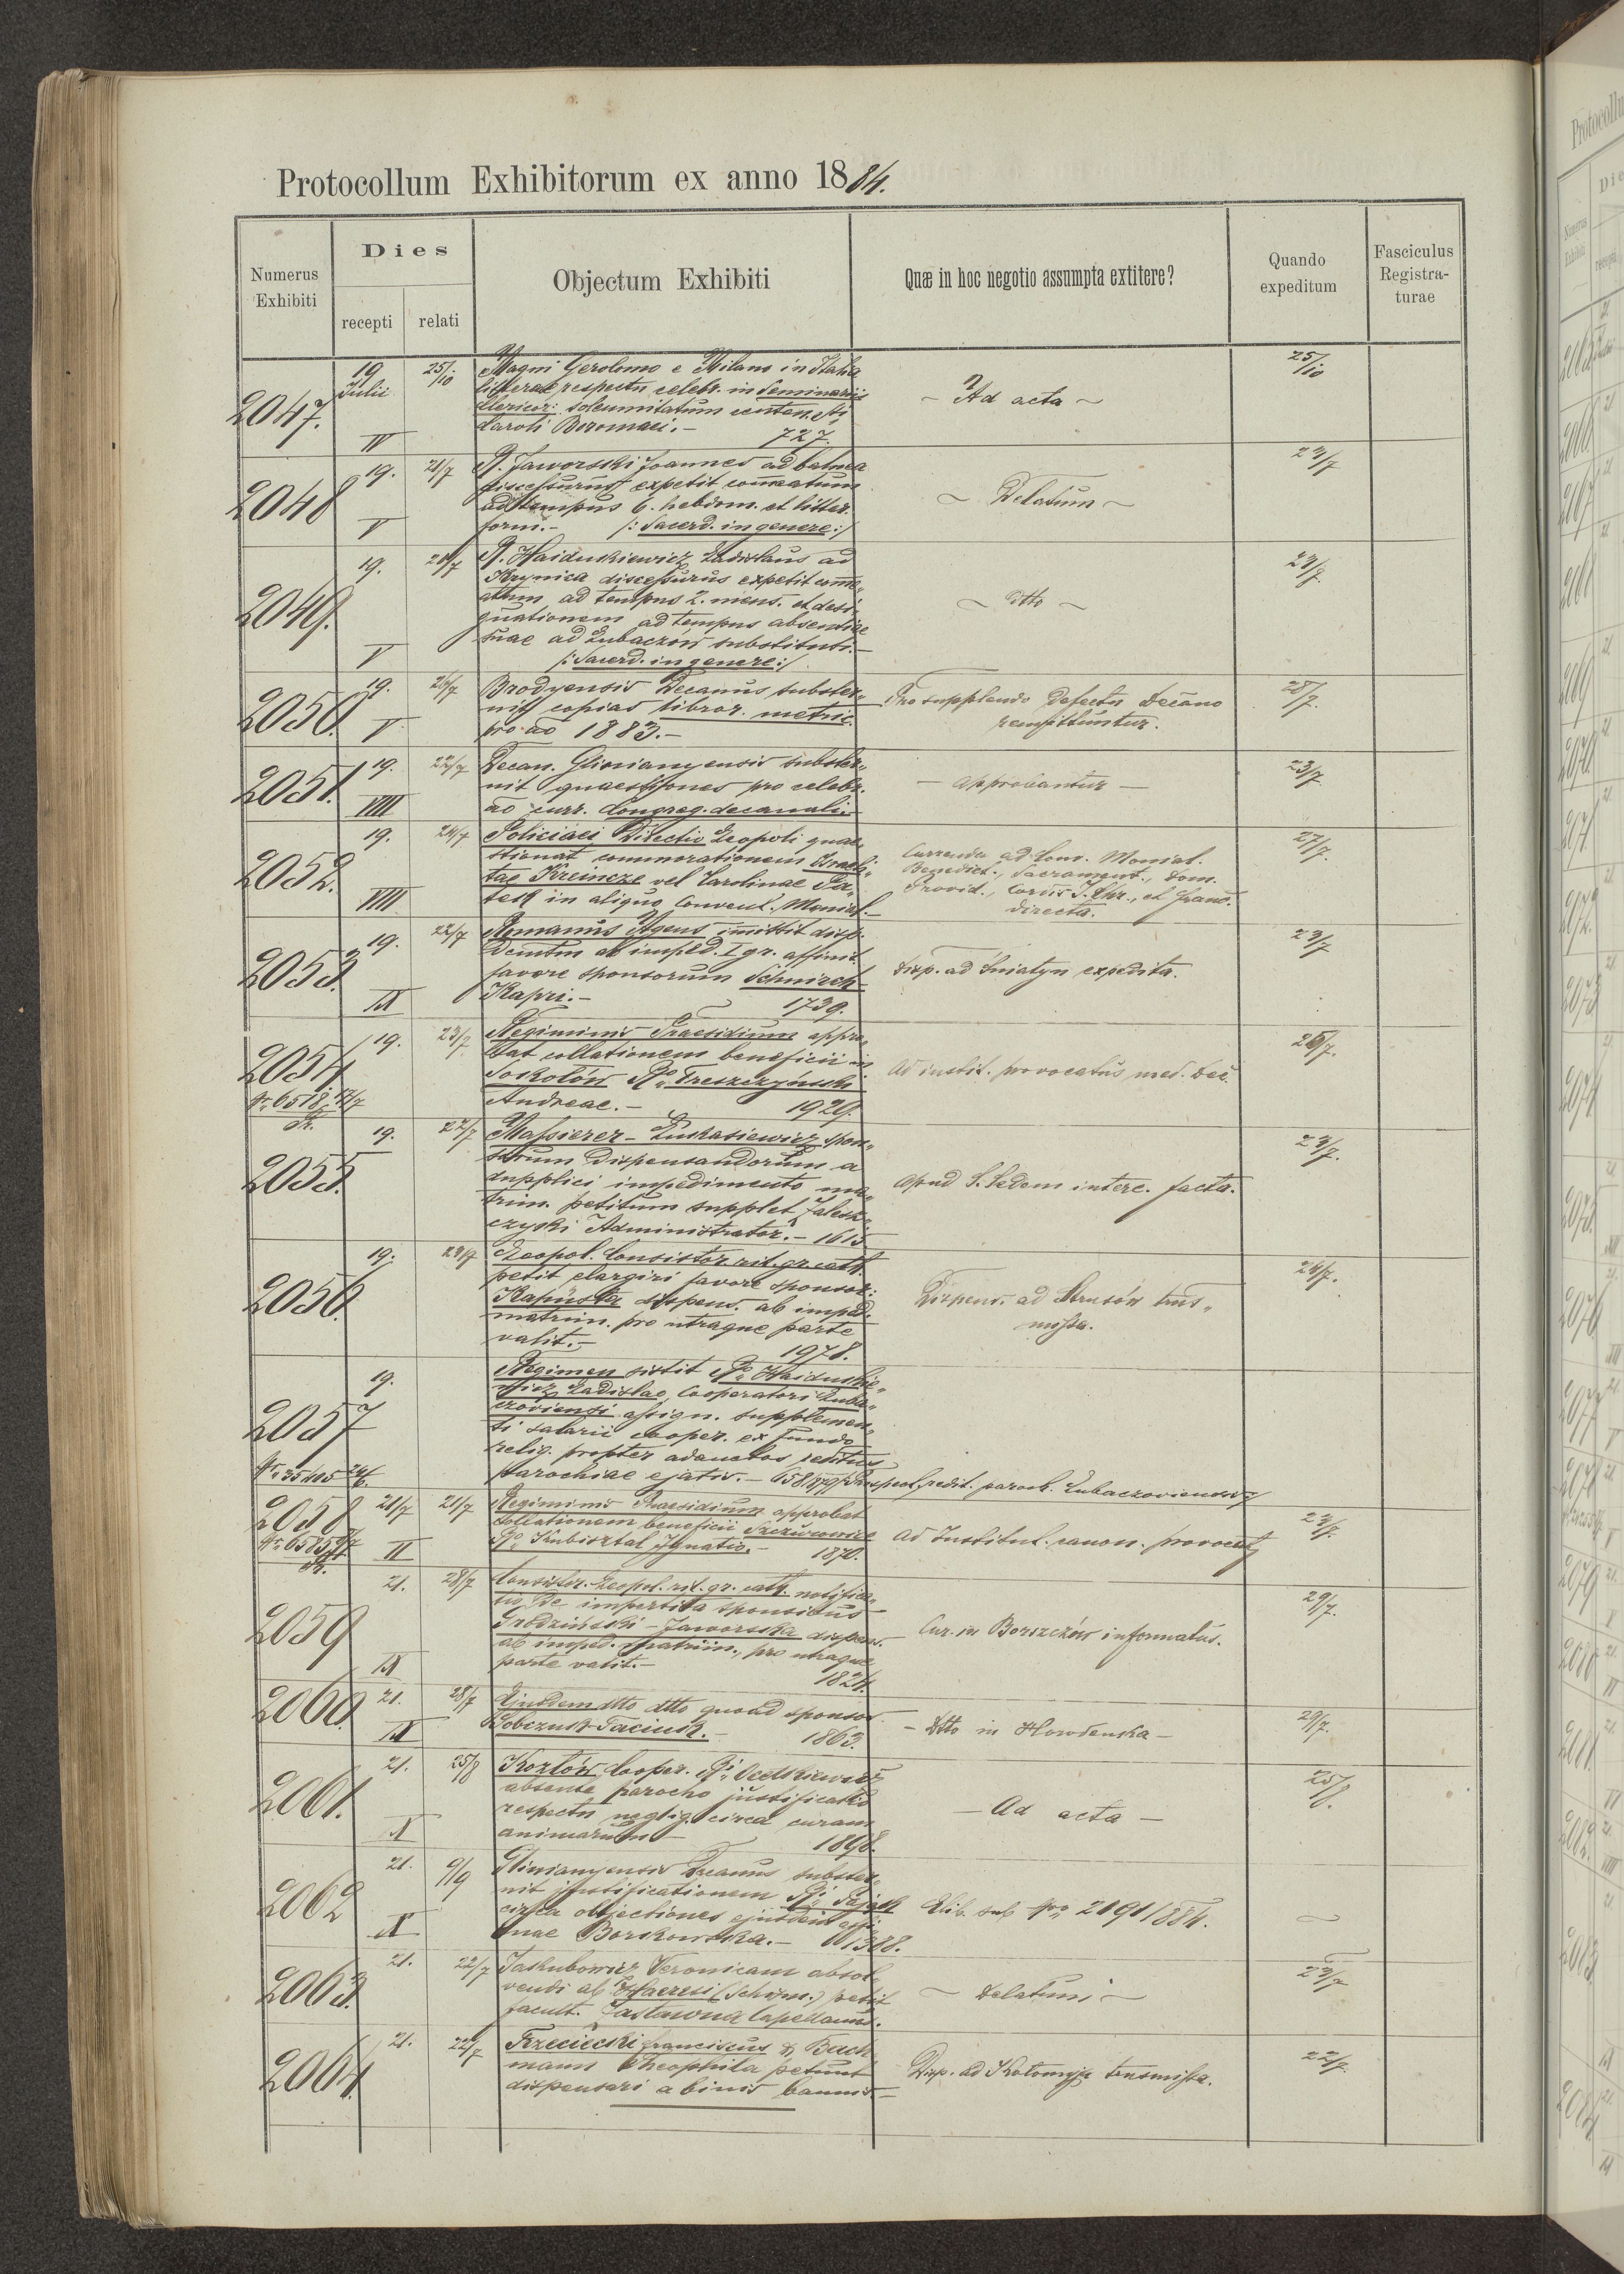 Protocollum Exhibitorum ex anno 1884.
Numerus Exhibiti
Dies
recepti
relati
Objectum Exhibiti
Quæ in hoc negotio assumpta extitere?
Quando expeditum
Fasciculus Registra-
turae
2047.
19 Julii
IV
25/10
Magni Gerolomo e Milano in Italia
litterae respectu celebr. in Seminariis
Clericor: solemnitatum centen. Sti
Caroli Boromaei.- 727.
- Ad acta -
25/10
2048
19.
V
21/7
R. Jaworski Joannes ad balnea
discessurus expetit com̄eatum
ad tempus 6. hebdom. et litter.
form.- /:Sacerd. in genere:/
- Delatum -
23/7
2049.
19.
V
R. Haiduskiewicz Ladislaus ad
Krynica discessurus expetit com̄e„
atum ad tempus 2. mens. et desi„
gnationem ad tempus absentiae
suae ad Lubaczów substituti.-
/:Sacerd. in genere:/
- dtto -
2050.
19.
V
26/7
Brodyensis Decanus subster„
nit copias libror. metric.
pro ao 1883.-
Pro supplendo defectu Decano
remittuntur.
28/7.
2051.
19.
VIII
22/7
Decan. Glinianyensis subster„
nit quaestiones pro celebr.
ao curr. Congreg. decanali.-
- approbantur -
23/7
2052.
19.
VIII
24/7
Policiaei Directio Leopoli quae„
stionat commorationem Israeli„
tae Kreincze vel Carolinae
in aliquo Convent. Monial.-
Currenda ad Conv. Monial.
Benedict., Sacrament., Dom.
Provid., Cordis J. Chr., et Franc.
directa.
27/7.
2053.
19.
IX
22/7
Romanus Agens immittit disp.
ab imped. I gr. affinit.
favore sponsorum Schmirch-
Kapri.- 1739.
Disp. ad Sniatyn expedita.
23/7
2054
Nr. 6518 17/7
Pr.
19.
23/7
Regiminis Praesidium appro„
bat collationem beneficii in
Sokołów Ro. Treszczyński
Andreae.- 1929.
Ad instit. provocatus med. Dec.
26/7.
2055.
19.
22/7
Massierer - Łukasiewicz spon„
sorum dispensandorum a
dupplici impedimento ma„
trim. petitum supplet Zalesz„
czyski Administrator.- 1615
Apud S. Sedem interc. facta.
23/7.
2056.
19.
Leopol. Consistor. rit. gr. cath.
petit elargiri favore sponsor:
Kapusta dispens. ab imped.
matrim. pro utraque parte
valit.- 1978.
Dispens. ad Strusów trans„
missa.
24/7.
2057
Nr. 35405 24/6.
19.
Regimen sistit Ro Haiduskie„
wicz Ladislao Cooperatori Luba„
czoviensi assign. supplemen„
ti salarii cooper. ex fundo
relig. propter adauctos reditus
parochiae ejatis.- 658/879
redit. paroch. Lubaczoviensis
2058
Pr.
21/7
II
21/7
Regiminis Praesidium approbat
collationem beneficii Szczurowice
Ro Kubisztal Ignatio.- 1870.
Ad Institut. canon. provocatus
23/7.
2059
21.
IX
28/7
Consistor. Leopol. rit. gr. cath. notifica„
tio de impertita sponsibus
Grodziński - Jaworska dispens.
ab imped. matrim., pro utraque
parte valit.- 1824.
Cur. in Borszczów informatus.
29/7.
2060.
21.
IX
28/7
Ejusdem dtto dtto quoad sponsos
1863.
- Dtto in
29/7.
2061.
21.
X
25/8
Kozłów Cooper. Ri.
absente parocho justificatio
respectu neglig. circa curam
animarum.- 1898.
- Ad acta -
25/8.
2062
21.
X
9/9
Glinianyensis Decanus subster„
nit justificationem Ri. Pająk
circa objectiones ejusdem
Borkowska.- 1388.
Elib. sub Nro 2191/884.
2063.
21.
22/7
Jakubowicz Veronicam absol„
vendi ab Haeresi (Schism.) petit
facult. Zastawna Capellanus.
- Delatum -
23/7
2064
21.
22/7
Trzeciecki Franciscus & Bach
mann Theophila petunt
dispensari a binis bannis.-
Disp. ad Kołomyja transmissa.
22/7.